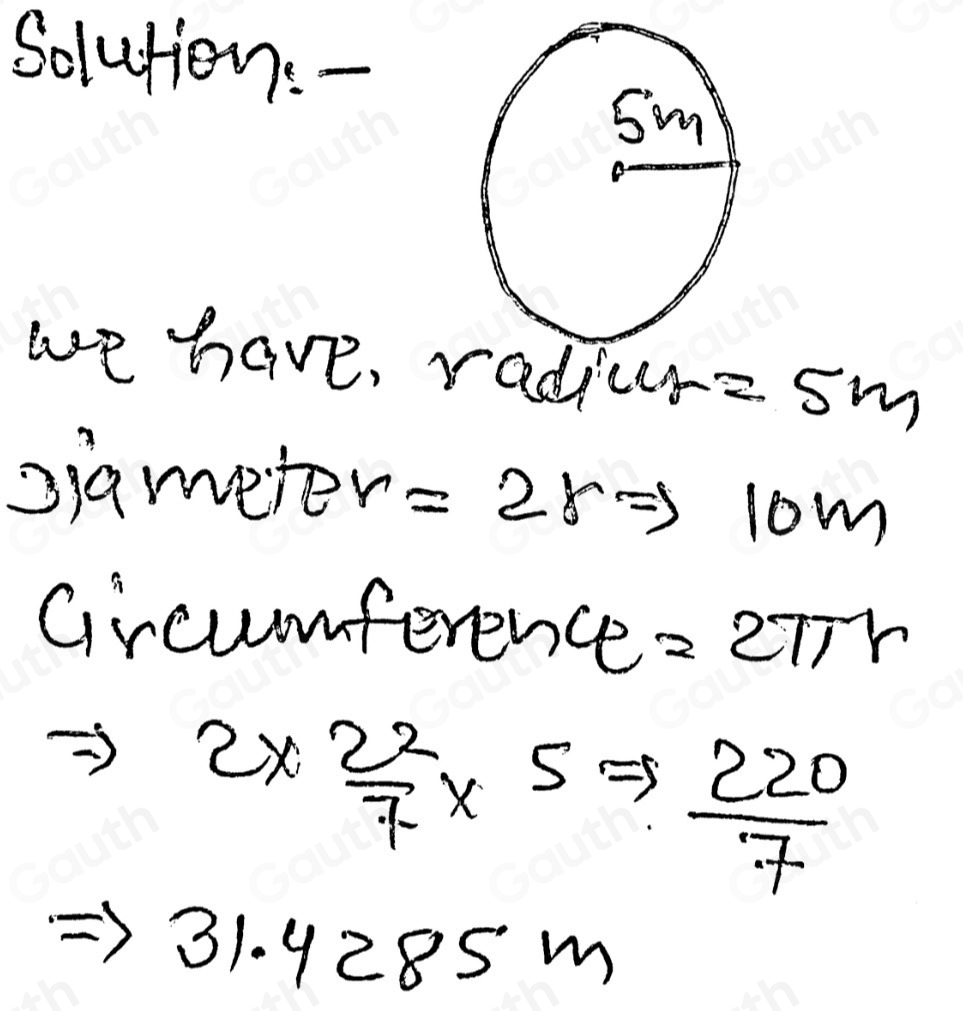 Solution:-
5m
we have, radius = 5m
Diameter = 2r ⇒ 10m
Circumference = 2πr
⇒ 2 × 22/7 × 5 ⇒ 220/7
⇒ 31.4285 m
Gauth